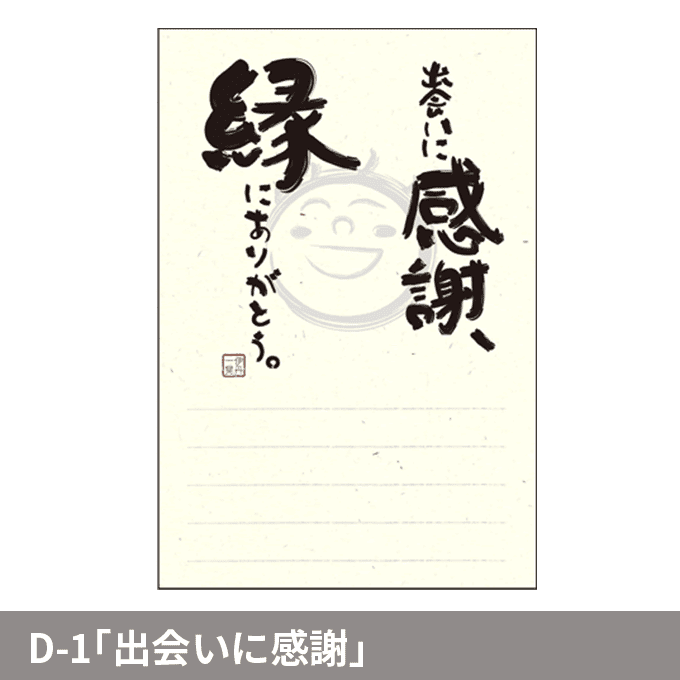 出会いに感謝、
縁にありがとう。
D-1「出会いに感謝」